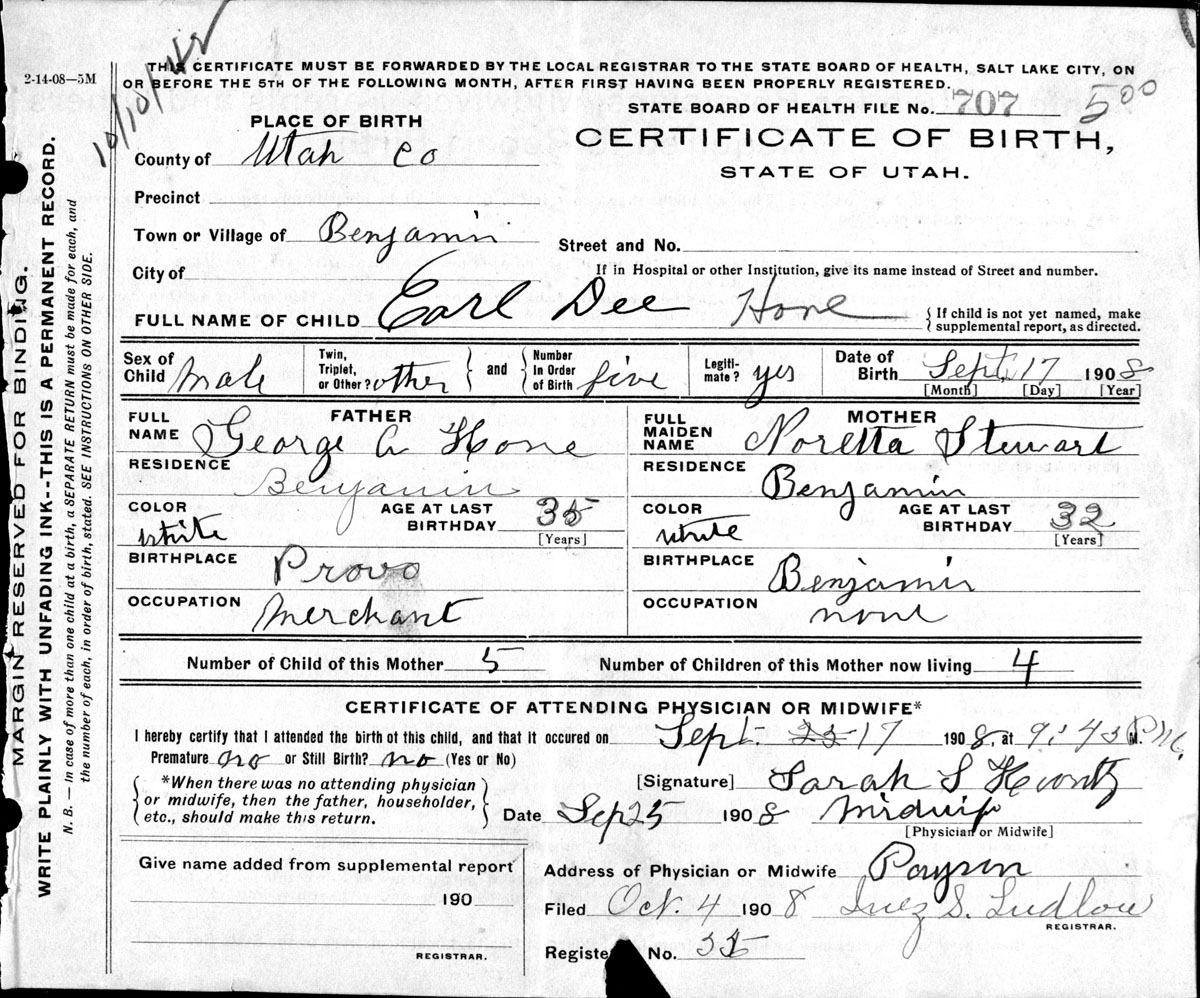 2-14-08—5M
THIS CERTIFICATE MUST BE FORWARDED BY THE LOCAL REGISTRAR TO THE STATE BOARD OF HEALTH, SALT LAKE CITY, ON
OR BEFORE THE 5TH OF THE FOLLOWING MONTH, AFTER FIRST HAVING BEEN PROPERLY REGISTERED.
STATE BOARD OF HEALTH FILE No. 707 5 00
PLACE OF BIRTH
CERTIFICATE OF BIRTH,
STATE OF UTAH.
County of Utah Co
Precinct
Town or Village of Benjamin
Street and No.
City of
If in Hospital or other Institution, give its name instead of Street and number.
FULL NAME OF CHILD Earl Dee Hone
{If child is not yet named, make
supplemental report, as directed.
Sex of Child Male
Twin, Triplet, or Other? other
and
Number In Order of Birth five
Legiti-mate? yes
Date of Birth Sept. 17 1908
[Month] [Day] [Year]
FATHER
FULL NAME George A Hone
RESIDENCE
Benjamin
COLOR white
AGE AT LAST BIRTHDAY 35
[Years]
BIRTHPLACE Provo
OCCUPATION Merchant
MOTHER
FULL MAIDEN NAME Noretta Stewart
RESIDENCE
Benjamin
COLOR white
AGE AT LAST BIRTHDAY 32
[Years]
BIRTHPLACE Benjamin
OCCUPATION none
Number of Child of this Mother 5
Number of Children of this Mother now living 4
CERTIFICATE OF ATTENDING PHYSICIAN OR MIDWIFE*
I hereby certify that I attended the birth of this child, and that it occured on Sept. 17 1908, at 9:43 P.M.
Premature no or Still Birth? no (Yes or No)
*When there was no attending physician
or midwife, then the father, householder,
etc., should make this return.
[Signature] Sarah S
Date Sep 25 1908 Midwife
[Physician or Midwife]
Give name added from supplemental report
190
REGISTRAR.
Address of Physician or Midwife Payson
Filed Oct. 4 1908 Inez S. Ludlow
REGISTRAR.
Registe No.
MARGIN RESERVED FOR BINDING.
WRITE PLAINLY WITH UNFADING INK--THIS IS A PERMANENT RECORD.
N. B.—In case of more than one child at a birth, a SEPARATE RETURN must be made for each, and
the number of each, in order of birth, stated. SEE INSTRUCTIONS ON OTHER SIDE.